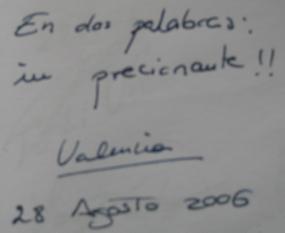 En dos palabras:
im precionante!!
Valencia
28 Agosto 2006